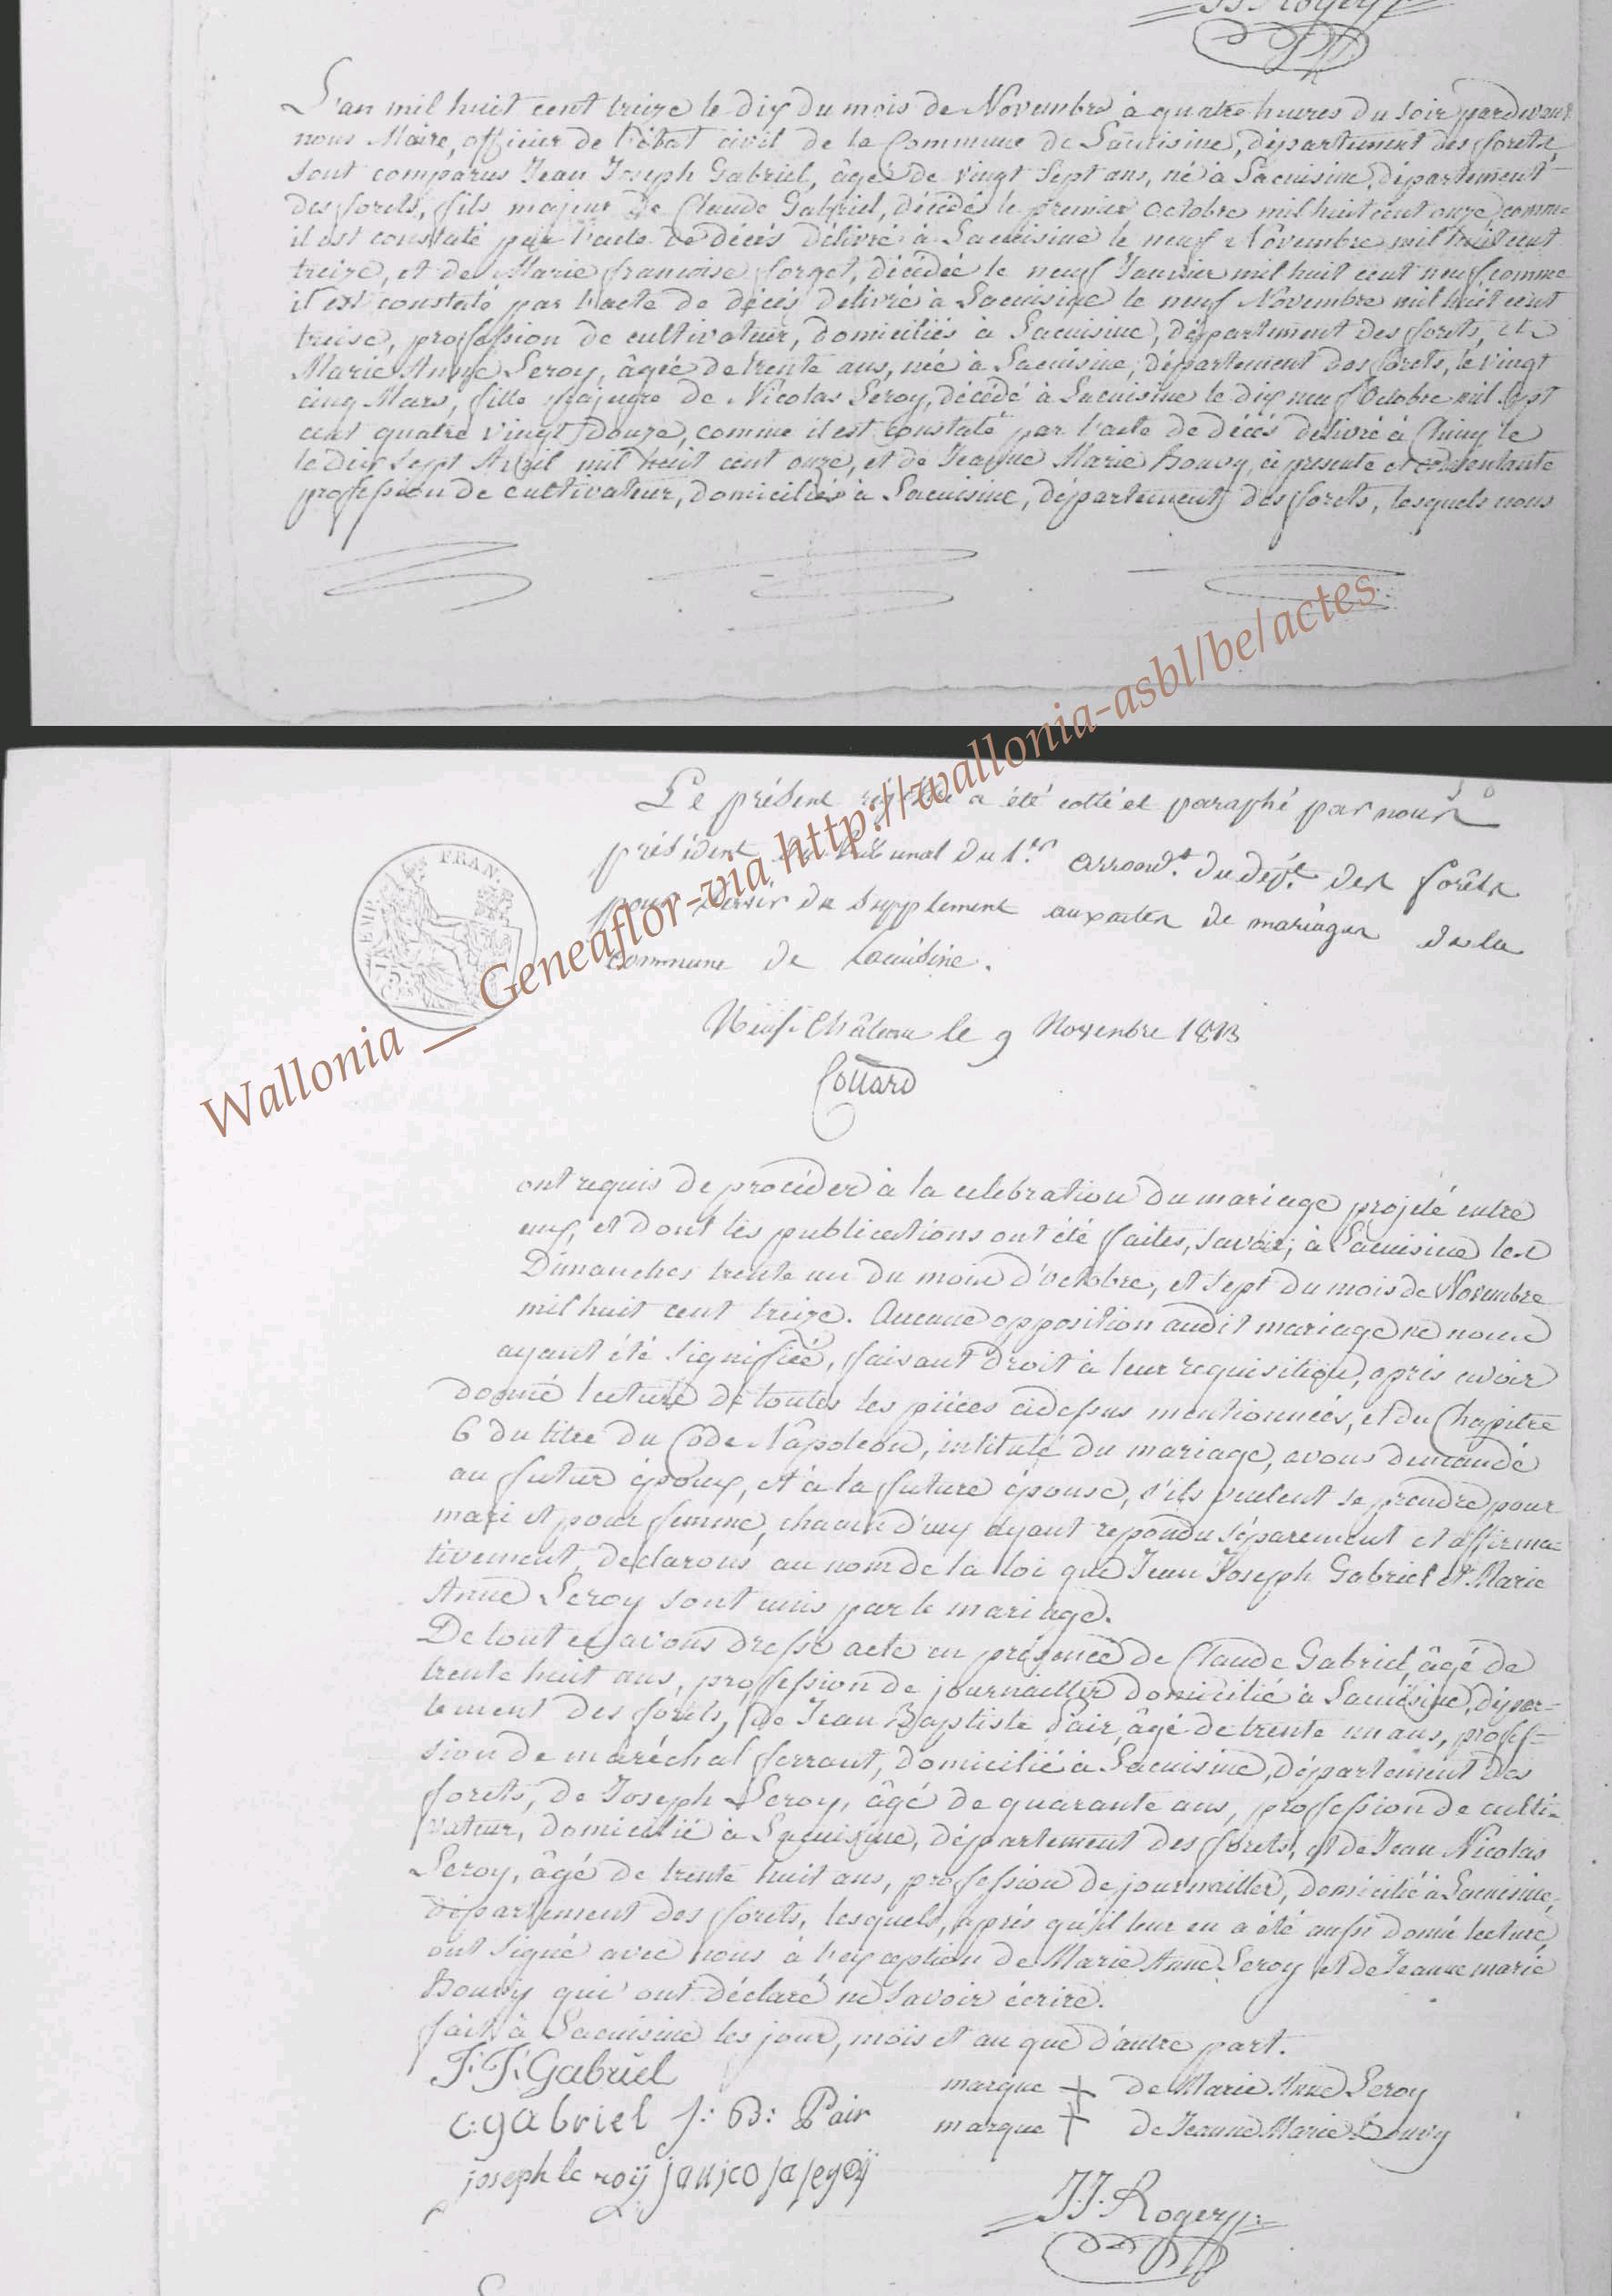 J.J. Rogery
L'an mil huit cent treize le dix du mois de Novembre à quatre heures du soir pardevant
nous Maire, officier de l'état civil de la Commune de Lacuisine, département des forets,
sont comparus Jean Joseph Gabriel, âgé de vingt sept ans, né à Lacuisine, département
des forets, fils majeur de Claude Gabriel, décédé le premier Octobre mil huit cent onze comme
il est constaté par l'acte de décès délivré à Lacuisine le neuf Novembre mil huit cent
treize, et de Marie françoise forget, décédée le neuf Janvier mil huit cent neuf comme
il est constaté par l'acte de décés delivré à Lacuisine le neuf Novembre mil huit cent
treise, profession de cultivateur, domiciliés à Lacuisine, département des forets, et
Marie Anne Leroy, âgée de trente ans, née à Lacuisine, département des forets, le vingt
cinq Mars, fille majeure de Nicolas Leroy, décédé à Lacuisine le dix neuf Octobre mil sept
cent quatre vingt douze, comme il est constaté par l'acte de décés delivré à Chiny le
le dix sept Avril mil huit cent onze, et de Jeanne Marie Bouvy, ci presente et consentante
profession de cultivateur, domiciliés à Lacuisine, département des forets, lesquels nous
Le présent registre a été cotté et paraphé par nous
président du tribunal du 1.er arrond.t du dép.t des forêts
pour servir de supplement aux actes de mariages de la
commune de Lacuisine.
Neuf-Château le 9 Novembre 1813
Collard
ont requis de procéder à la celebration du mariage projeté entre
eux, et dont les publications ont été faites, savoir; à Lacuisine les
Dimanches trente un du mois d'octobre, et sept du mois de Novembre
mil huit cent treize. Aucune opposition audit mariage ne nous
ayant été signifiée, faisant droit à leur requisition, après avoir
donné lecture de toutes les pièces cidessus mentionnées, et du Chapitre
6 du titre du Code Nâpoleon, intitulé du mariage, avons demandé
au futur époux, et à la future épouse, s'ils veulent se prendre pour
mari et pour femme, chacun d'eux ayant repondu séparement et affirma=
tivement, declarons au nom de la loi que Jean Joseph Gabriel et Marie
Anne Leroy sont unis par le mariage.
De tout ce avons dressé acte en présence de Claude Gabriel, âgé de
trente huit ans, profession de journailler domicilié à Lacuisine, dépar=
tement des forets, de Jean Baptiste Pair, âgé de trente un ans, profes=
sion de maréchal ferrant, domicilié à Lacuisine, département des
forets, de Joseph Leroy, âgé de quarante ans, profession de culti=
vateur, domicilié à Lacuisine, département des forets, et de Jean Nicolas
Leroy, âgé de trente huit ans, profession de journailler, domicilié à Lacuisine,
département des forets, lesquels, aprés qu'il leur en a été aussi donné lecture,
ont signé avec nous à l'exception de Marie Anne Leroy et de Jeanne marie
Bouvy qui ont déclaré ne savoir écrire.
fait à Lacuisine les jour, mois et an que d'autre part.
J: J: Gabriel
marque + de Marie Anne Leroy
c: gabriel J: B: Pair
marque + de Jeanne Marie Bouvy
joseph le roÿ
J.J. Rogery
Wallonia __ Geneaflor-via http://wallonia-asbl/be/actes